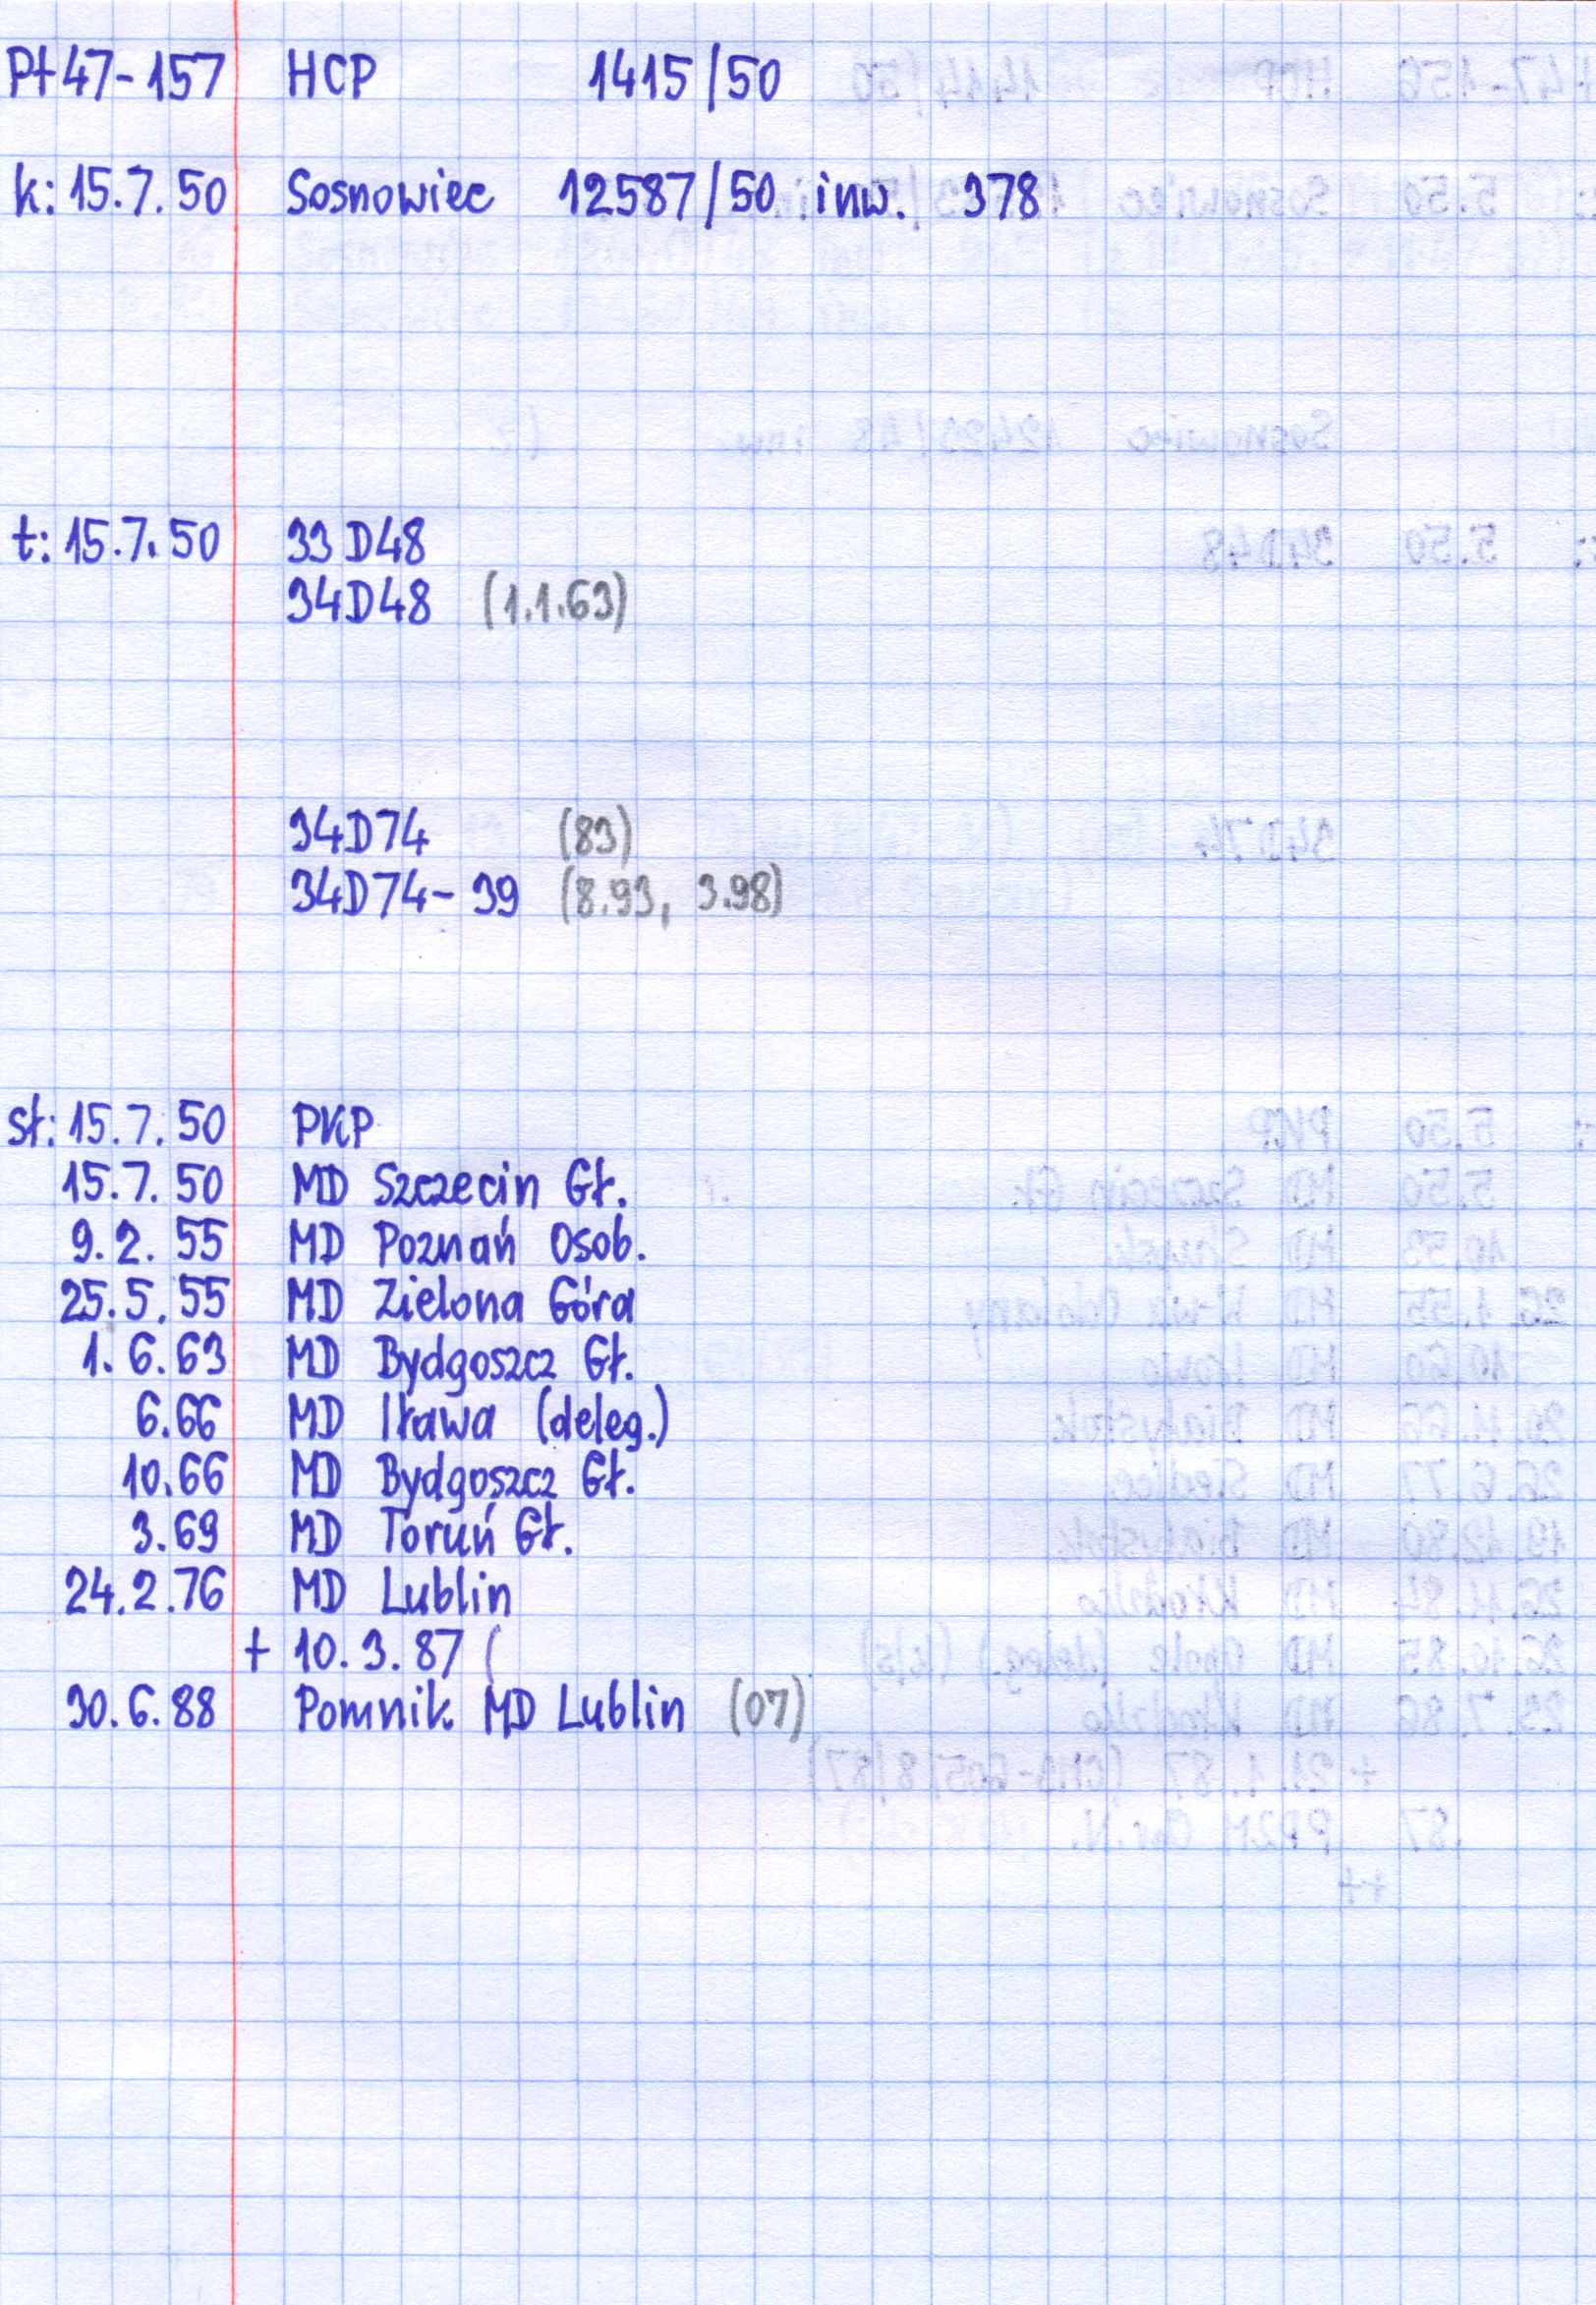 Pt47-157 HCP 1415/50
k: 15.7.50 Sosnowiec 12587/50 inw. 378
t: 15.7.50 33D48
34D48 (1.1.63)
34D74 (83)
34D74-39 (8.93, 3.98)
sł: 15.7.50 PKP
15.7.50 MD Szczecin Gł.
9.2.55 MD Poznań Osob.
25.5.55 MD Zielona Góra
1.6.63 MD Bydgoszcz Gł.
6.66 MD Iława (deleg.)
10.66 MD Bydgoszcz Gł.
3.69 MD Toruń Gł.
24.2.76 MD Lublin
+ 10.3.87 (
30.6.88 Pomnik MD Lublin (07)